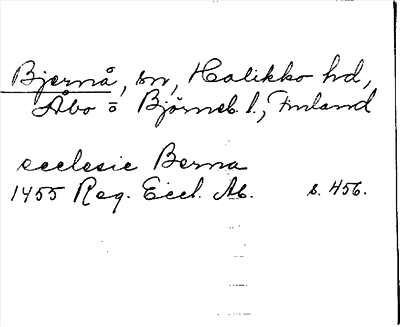 Bjernå, sn, Halikko hd,
Åbo o Björneb. l., Finland
ecclesie Berna
1455 Reg. Eccl. Ab. s. 456.